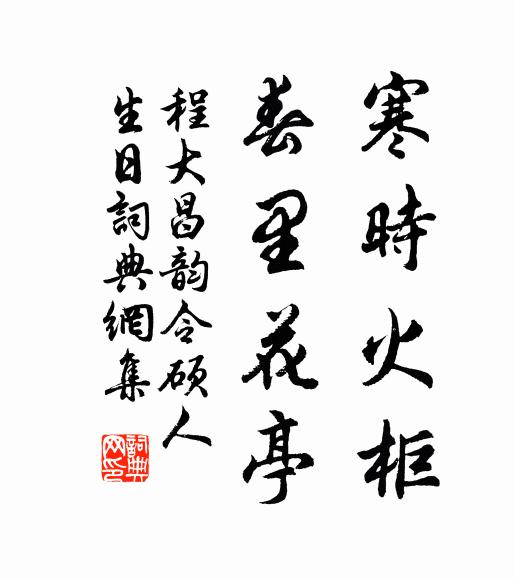 寒時火柜
春里花亭
程大昌韵令硕人
生日詞典網集
詞典网印